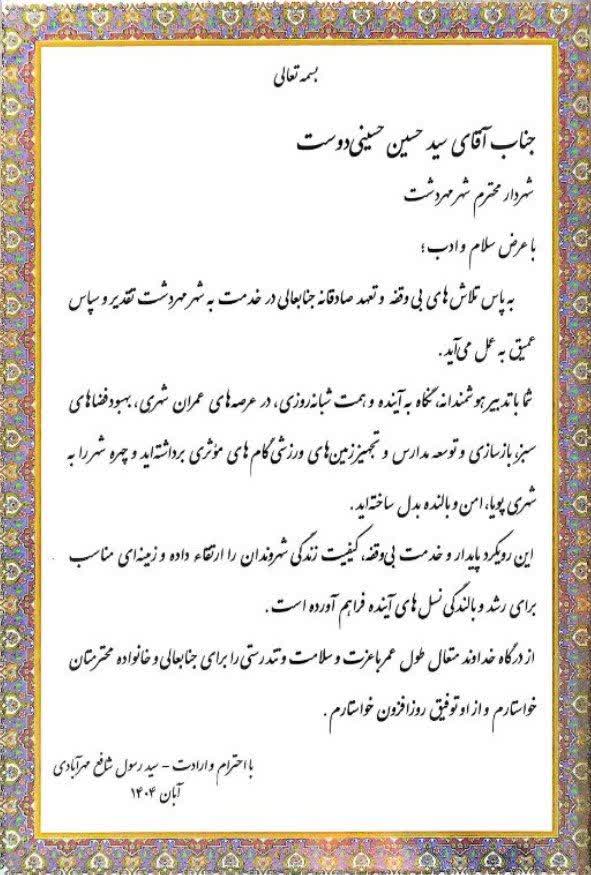 بسمه تعالی
جناب آقای سید حسین حسینی‌دوست
شهردار محترم شهر مهردشت
با عرض سلام و ادب؛
به پاس تلاش های بی وقفه و تعهد صادقانه جنابعالی در خدمت به شهر مهردشت تقدیر و سپاس
عمیق به عمل می‌آید.
شما با تدبیر هوشمندانه، نگاه به آینده و همت شبانه‌روزی، در عرصه‌های عمران شهری، بهبود فضاهای
سبز، بازسازی و توسعه مدارس و تجهیز زمین‌های ورزشی گام های مؤثری برداشته‌اید و چهره شهر را به
شهری پویا، امن و بالنده بدل ساخته‌اید.
این رویکرد پایدار و خدمت بی‌وقفه، کیفیت زندگی شهروندان را ارتقاء داده و زمینه‌ای مناسب
برای رشد و بالندگی نسل های آینده فراهم آورده است.
از درگاه خداوند متعال طول عمر باعزت و سلامت و تندرستی را برای جنابعالی و خانواده محترمتان
خواستارم و از او توفیق روزافزون خواستارم.
با احترام و ارادت - سید رسول شافع مهرآبادی
آبان ۱۴۰۴